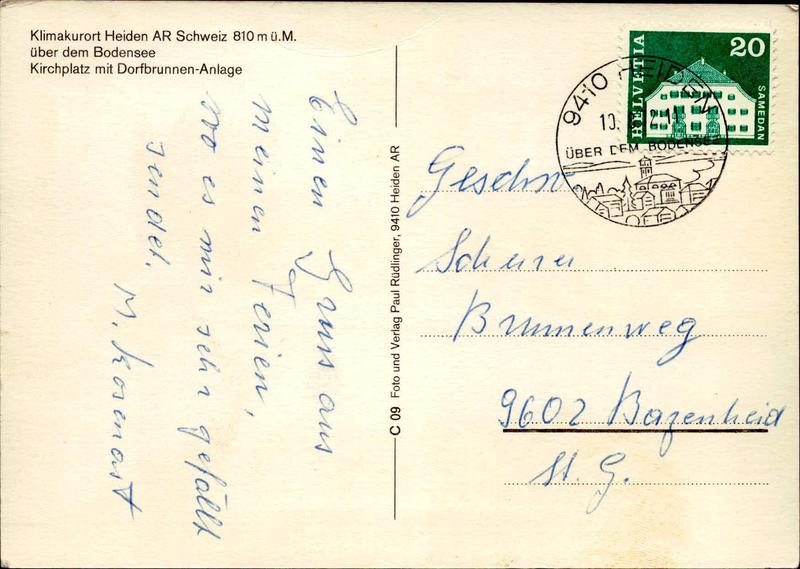 Klimakurort Heiden AR Schweiz 810 m ü.M.
über dem Bodensee
Kirchplatz mit Dorfbrunnen-Anlage
Einen Gruss aus
meinen Ferien,
wo es mir sehr gefällt
sendet.
M. Rosenast
C 09 Foto und Verlag Paul Rüdlinger, 9410 Heiden AR
HELVETIA
20
SAMEDAN
9410 HEIDEN
ÜBER DEM BODENSEE
Geschw
Scherrer
Brunnenweg
9602 Bazenheid
St. G.